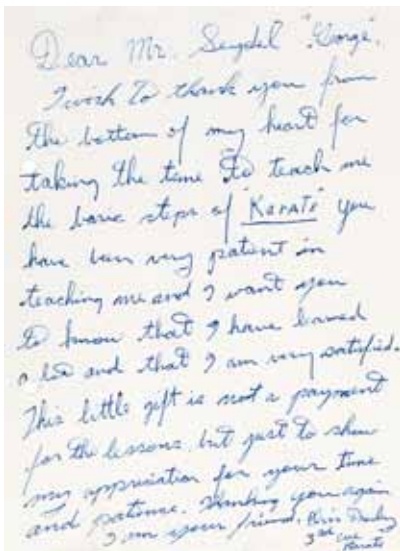 Dear Mr. Seydel "George".
I wish to thank you from
the bottom of my heart for
taking the time to teach me
the basic steps of "Karate" you
have been very patient in
teaching me and I want you
to know that I have learned
a lot and that I am very satisfied.
This little gift is not a payment
for the lessons, but just to show
my appreciation for your time
and patience. Thanking you again
I am your friend,
3rd
Karate